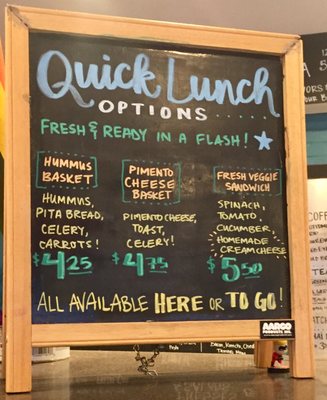 Quick Lunch
OPTIONS.....
FRESH & READY IN A FLASH!
HUMMUS
BASKET
HUMMUS,
PITA BREAD,
CELERY,
CARROTS!
$4.25
PIMENTO
CHEESE
BASKET
PIMENTO CHEESE,
TOAST,
CELERY!
$4.75
FRESH VEGGIE
SANDWICH
SPINACH,
TOMATO,
CUCUMBER,
HOMEMADE
CREAM CHEESE
$5.50
ALL AVAILABLE HERE OR TO GO!
AARCO